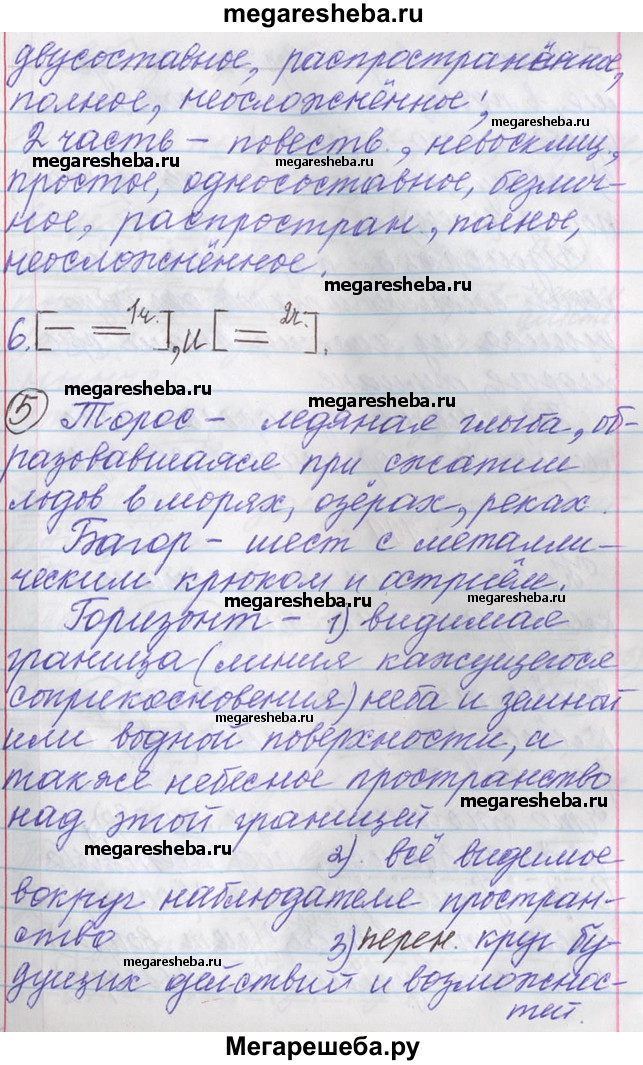 megaresheba.ru
двусоставное, распространённое,
полное, неосложнённое;
megaresheba.ru
2 часть – повеств., невосклиц.,
megaresheba.ru
megaresheba.ru
простое, односоставное, безлич-
ное, распростран., полное,
неосложнённое.
megaresheba.ru
6. [— = 1ч.], и [= 2ч.].
megaresheba.ru
megaresheba.ru
5 Торос – ледяная глыба, об-
разовавшаяся при сжатии
льдов в морях, озёрах, реках.
Багор – шест с металли-
ческим крюком и остриём.
megaresheba.ru
megaresheba.ru
Горизонт – 1) видимая
граница (линия кажущегося
соприкосновения) неба и земной
megaresheba.ru
или водной поверхности, а
также небесное пространство
megaresheba.ru
над этой границей
megaresheba.ru
2). всё видимое
вокруг наблюдателя простран-
ство 3) перен. круг бу-
megaresheba.ru
дущих действий и возможнос-
тей.
Мегарешеба.ру